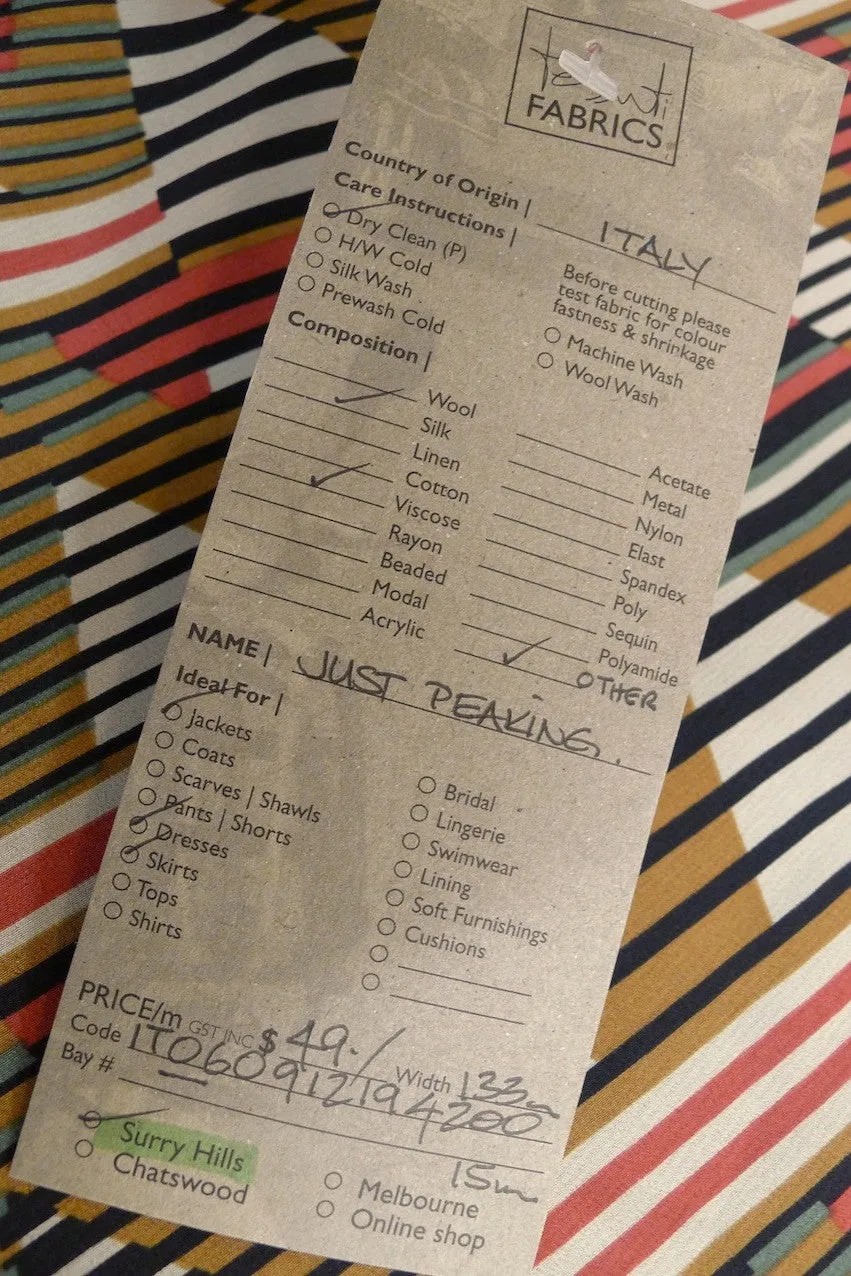 tessuti
FABRICS
Country of Origin | ITALY
Care Instructions |
Dry Clean (P)
H/W Cold
Silk Wash
Prewash Cold
Before cutting please
test fabric for colour
fastness & shrinkage
Machine Wash
Wool Wash
Composition |
Wool
Silk
Linen
Cotton
Viscose
Rayon
Beaded
Modal
Acrylic
Acetate
Metal
Nylon
Elast
Spandex
Poly
Sequin
Polyamide
OTHER
NAME | JUST PEAKING.
Ideal For |
Jackets
Coats
Scarves | Shawls
Pants | Shorts
Dresses
Skirts
Tops
Shirts
Bridal
Lingerie
Swimwear
Lining
Soft Furnishings
Cushions
PRICE/m GST INC $49./ Width 133
Code
Bay #
15m
Surry Hills
Chatswood
Melbourne
Online shop